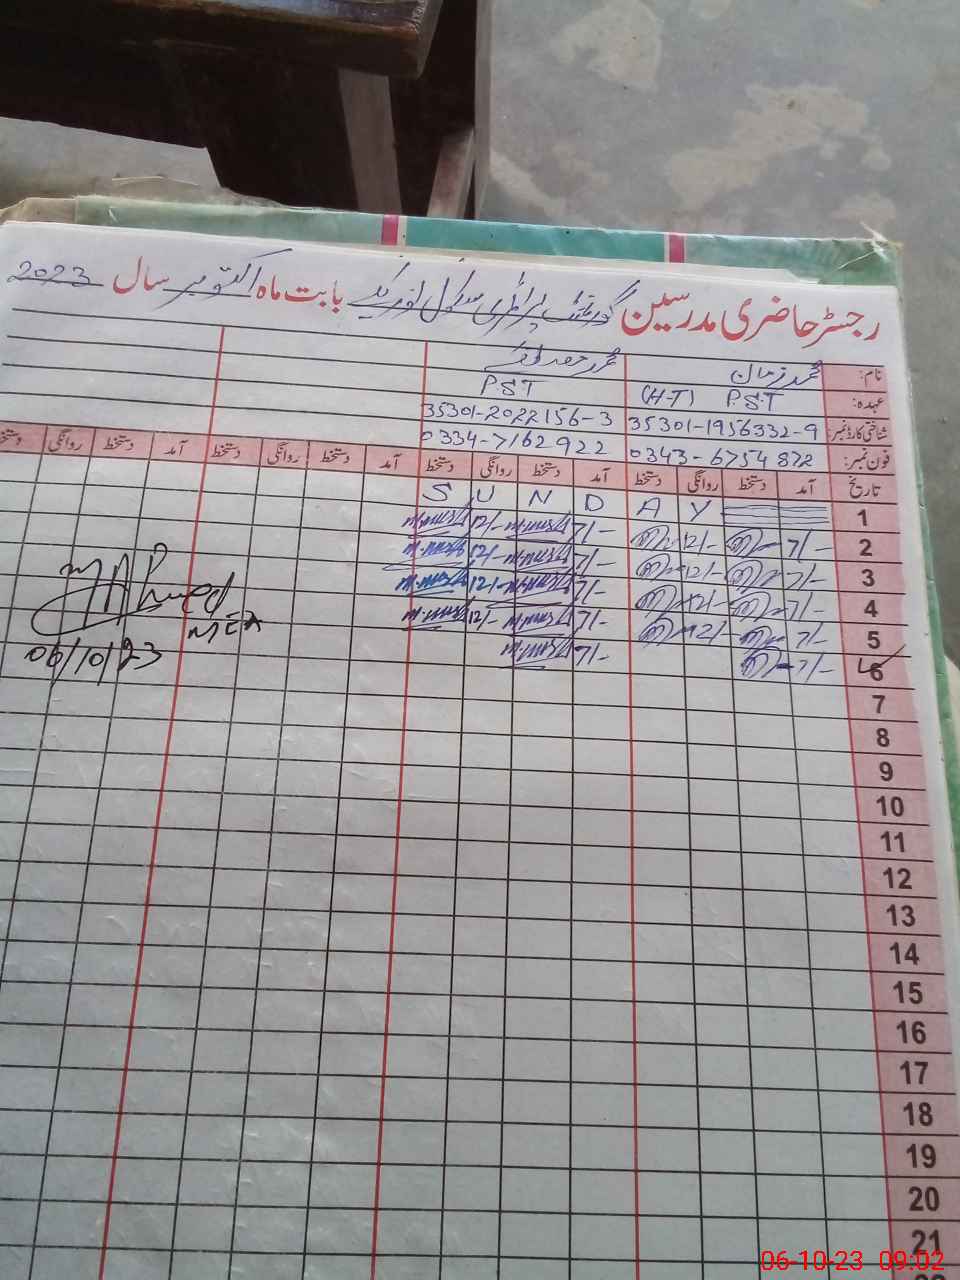 رجسٹر حاضری مدرسین گورنمنٹ پرائمری سکول بابت ماہ اکتوبر سال 2023
نام: محمد زمان محمد
عہدہ: P.S.T (H.T) P.S.T
شناختی کارڈ نمبر: 35301-1956332-9 35301-2022156-3
فون نمبر: 0343-6754872 0334-7162922
تاریخ آمد دستخط روانگی دستخط آمد دستخط روانگی دستخط آمد دستخط روانگی دستخط آمد دستخط روانگی
1 S U N D A Y
2 7/- 12/- 7/- 12/-
3 7/- 12/- 7/- 12/-
4 7/- 12/- 7/- 12/-
5 7/- 12/- 7/- 12/-
6 7/- 7/-
M Ahmed
MEA
06/10/23
7
8
9
10
11
12
13
14
15
16
17
18
19
20
21
06-10-23 09:02